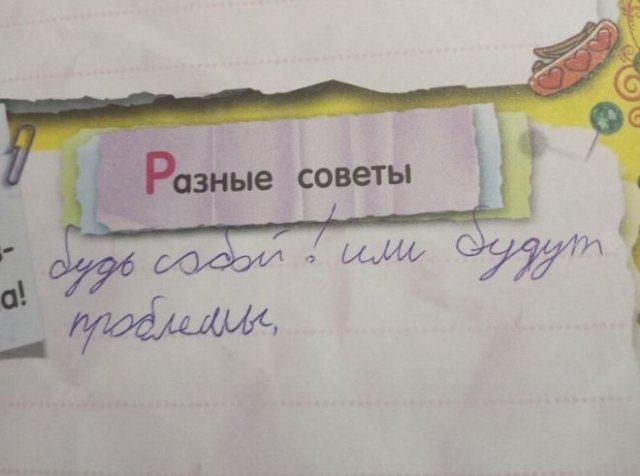 Разные советы
-
а!
будь собой! или будут
проблемы.